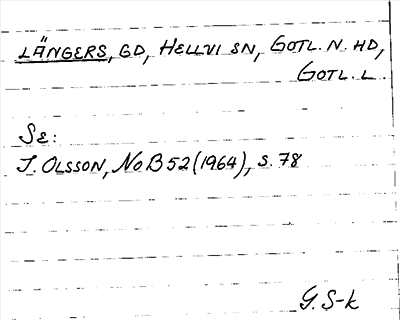 LÄNGERS, GD, HELLVI SN, GOTL. N. HD,
GOTL. L.
SE:
I. OLSSON, NoB 52 (1964), S. 78
G. S-k